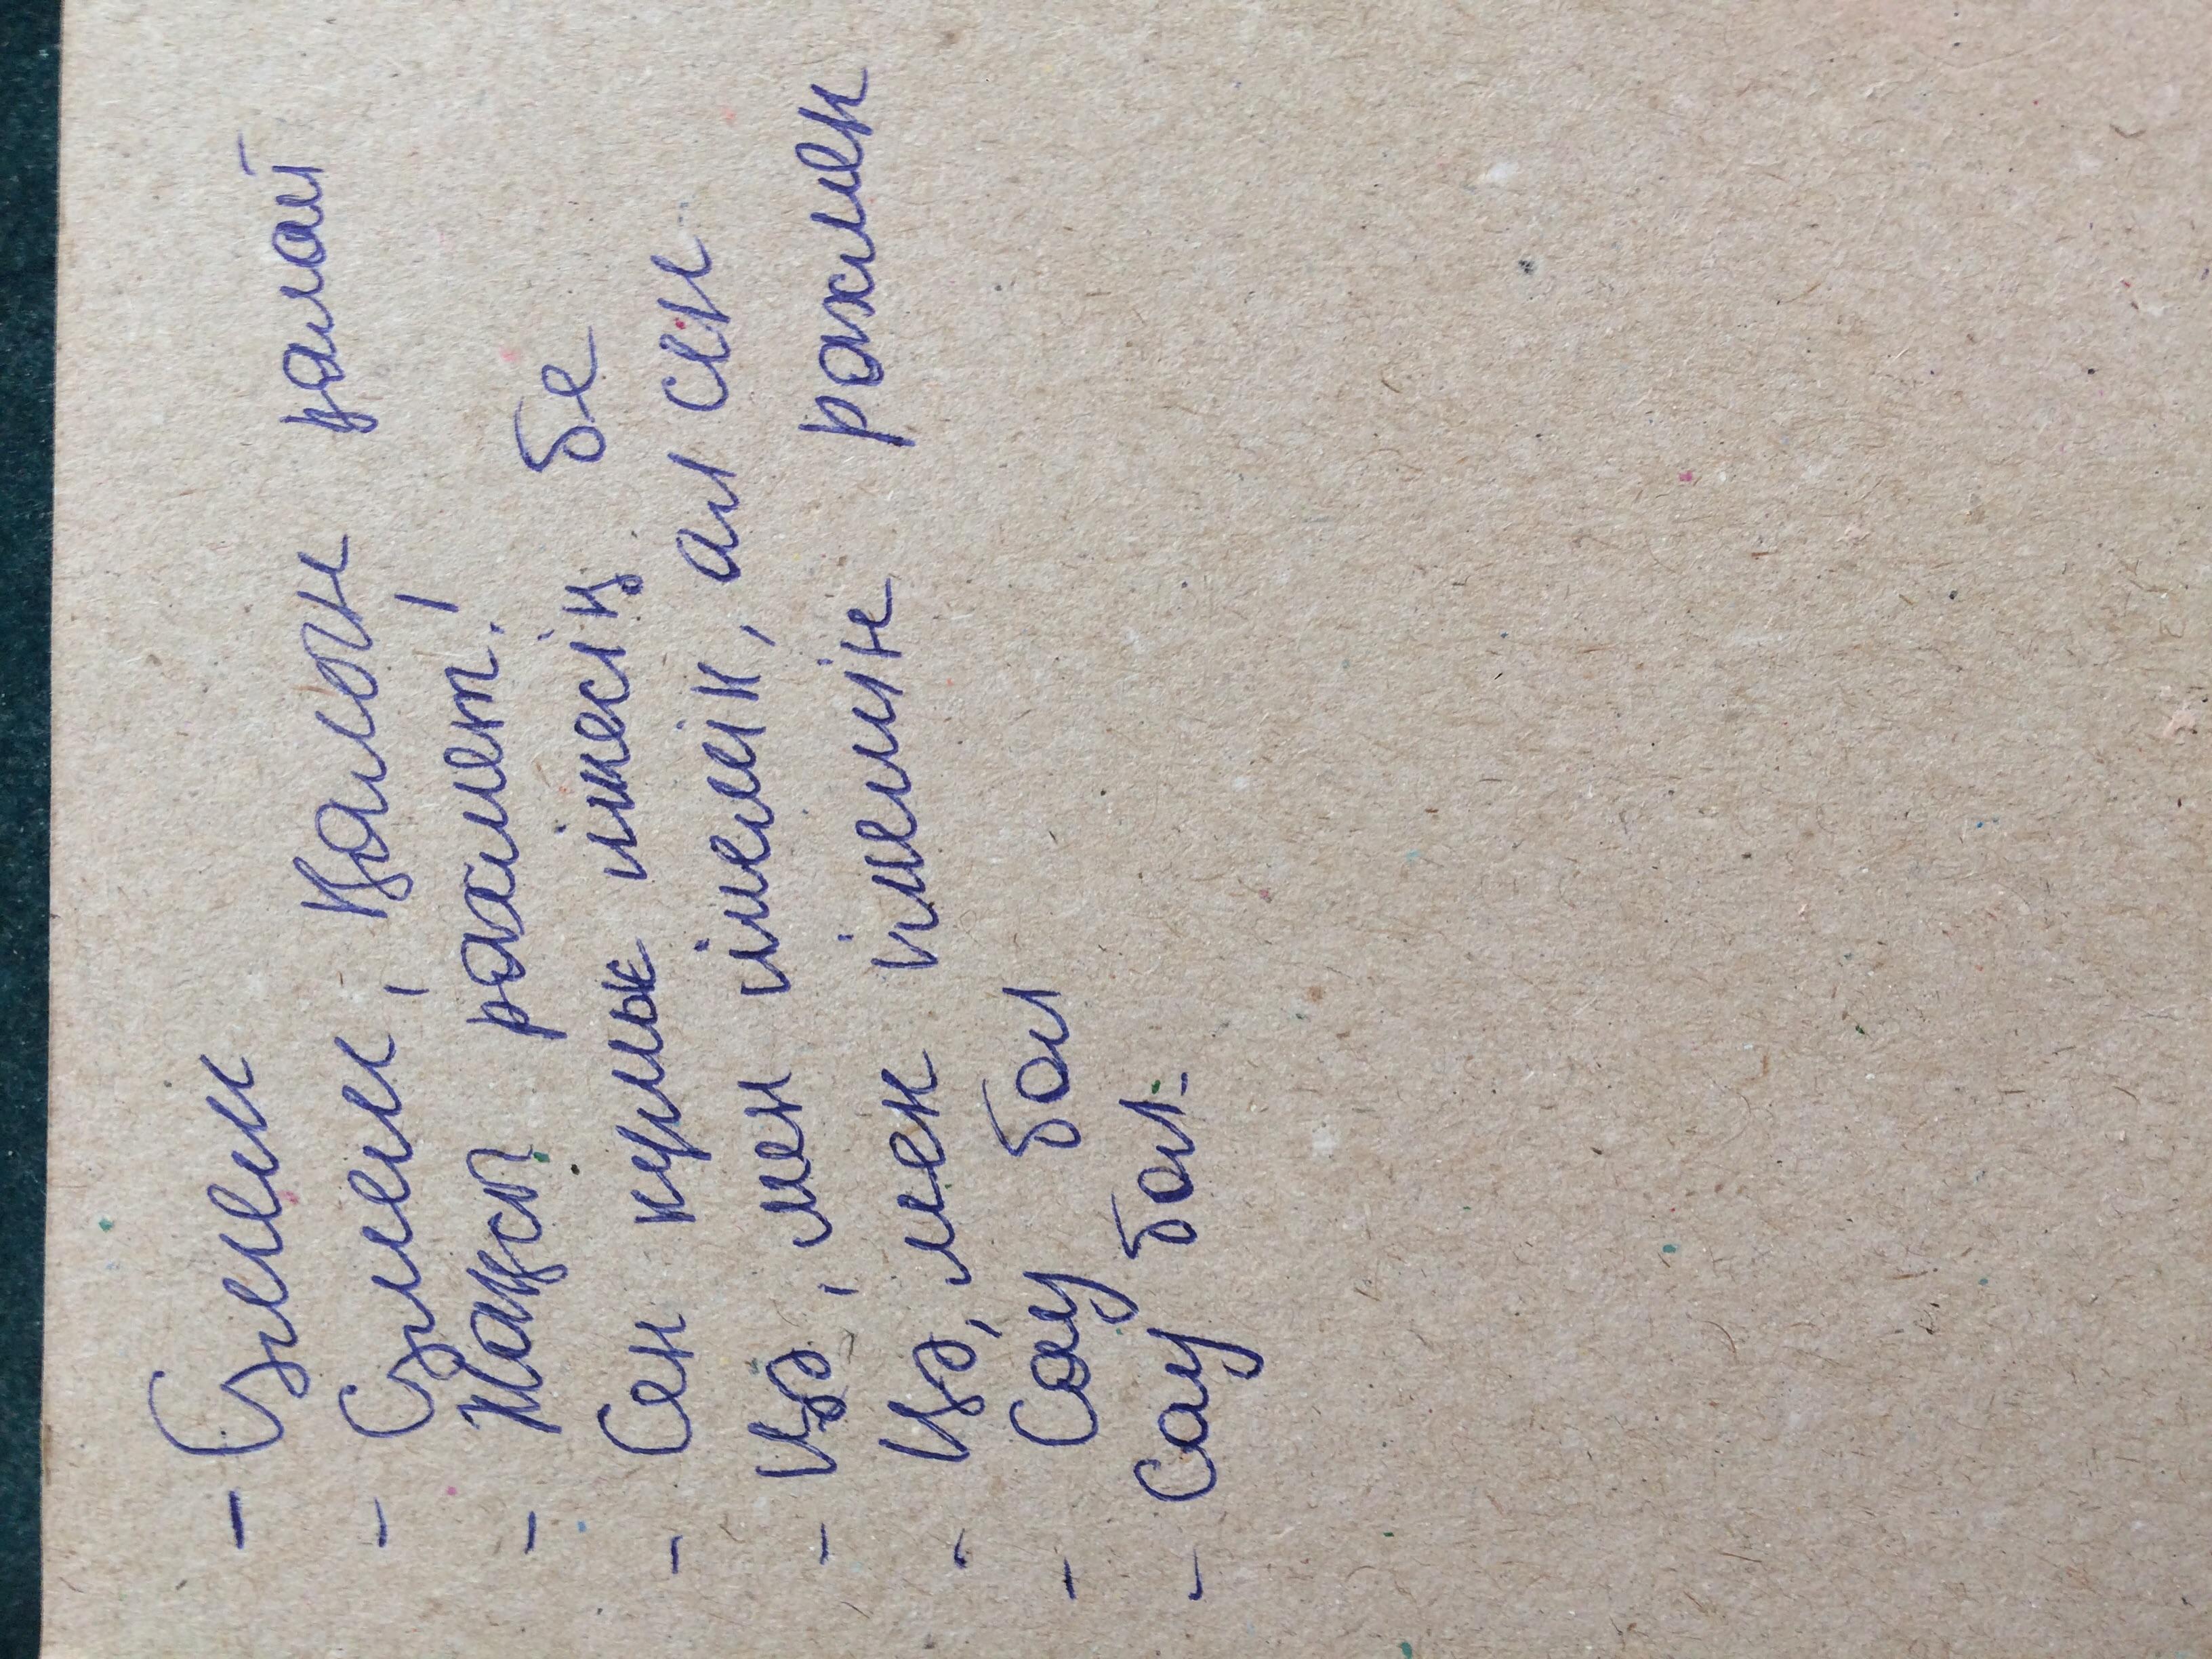 - Сәлем
- Сәлем, Қалың қалай
- Жақсы рахмет!
- Сен кұрмык імесің бе
- Иә, мен імемін, ал сен
- Иә, мен імеміне рахмен
- Сау бол
- Сау бол.